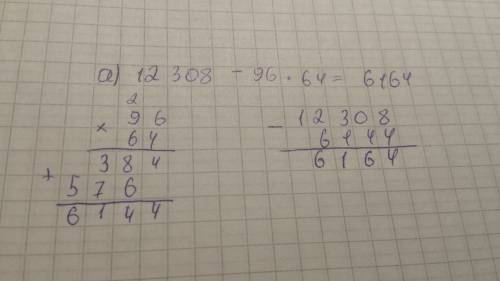 а) 12 308 - 96 · 64 = 6164
2
× 96
64
384
+ 576
6144
- 12308
6144
6164